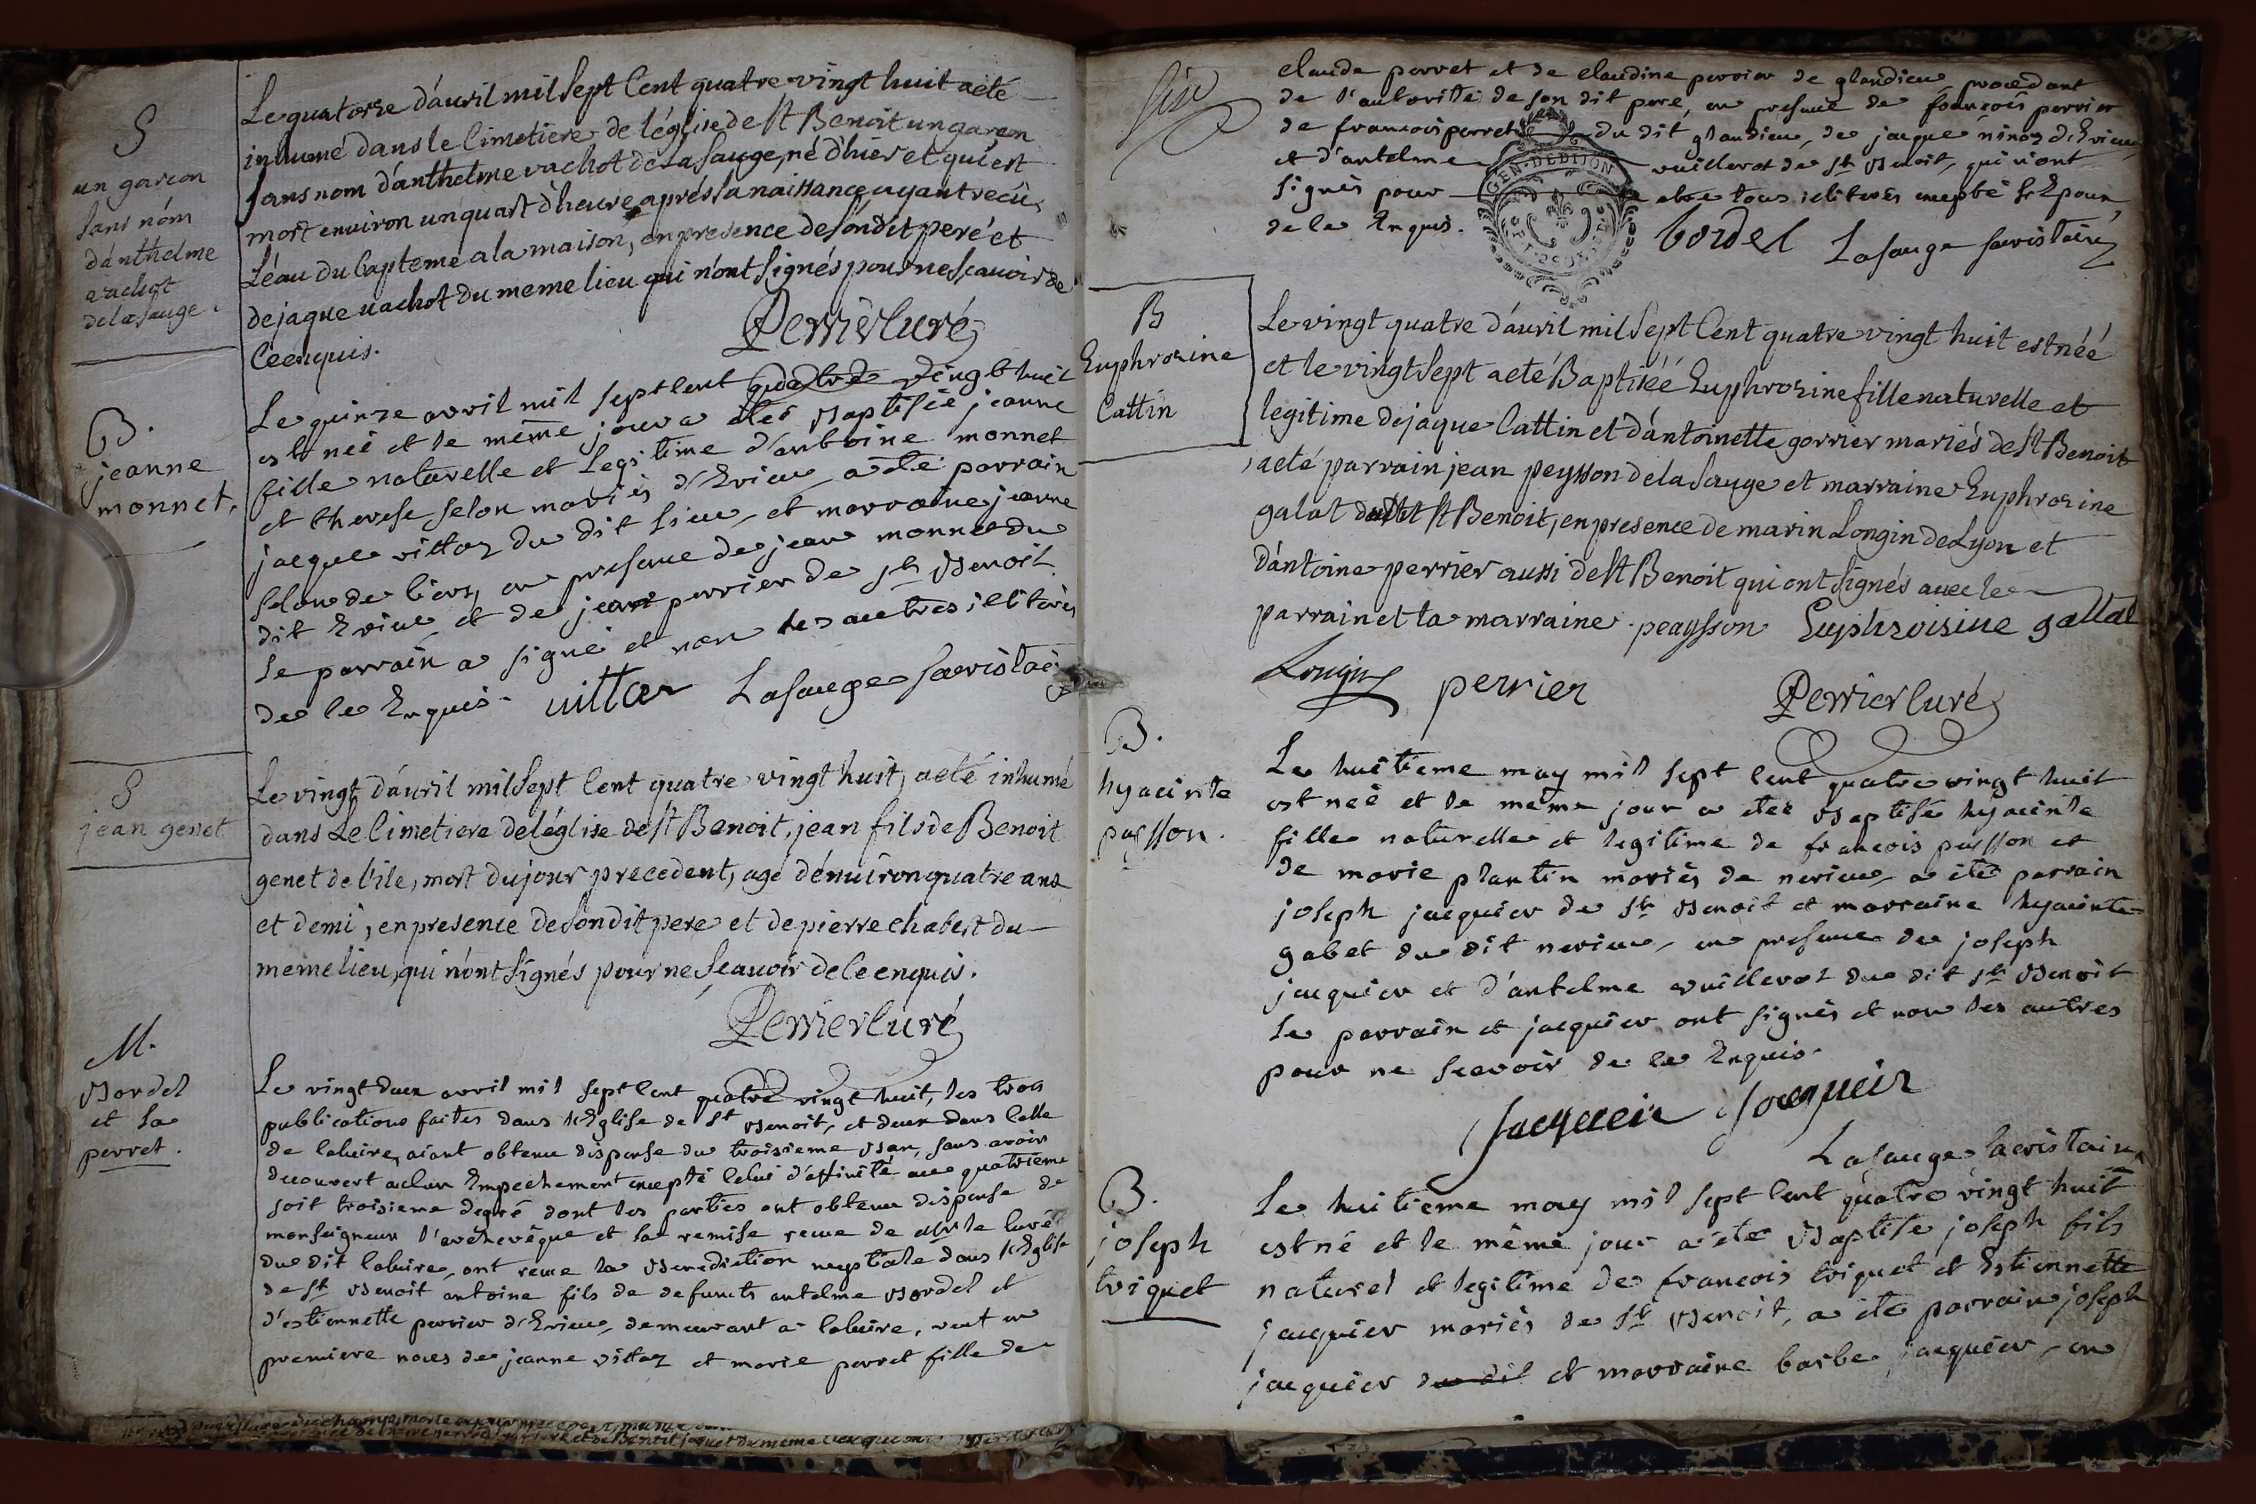 S
un garcon
sans nóm
d'anthelme
vachot
delasauge.
Le quatorze d'auril mil sept Cent quatre vingt huit aeté
inhumé dans le Cimetiere de l'église de St Benoit un garcon
sans nom d'anthelme vachot de La Sauge, né d'hier et qui est
mort environ un quart d'heure aprés sa naissance, ayant recû
L'éau du Bapteme a la maison, en presence de son dit peré et
de jaque vachot du meme lieu qui n'ont signés pour ne scauoir de
Ce enquis.
Perrier Curé
B.
jeanne
monnet.
Le quinze avril mil sept cent quatre vingt huit
est neé et le même jour a eteé Baptisée jeanne
fille naturelle et Legitime d'antoine monnet
et therese selon mariés d'Evieu, a ete parrain
jacque vittoz du dit lieu, et marraine jeanne
selon de liers, en presence de jean monnet du
dit Evieu et de jean perrier de st Benoit
Le parrain a signé et non les autres illiterés
de ce Enquis. vittoz Lasauge Sacristain
S
jean genet
Le vingt d'auril mil sept Cent quatre vingt huit, aeté inhumé
dans Le Cimetiere de l'église de St Benoit, jean fils de Benoit
genet de l'ile, mort du jour precedent, agé d'enuiron quatre ans
et demi, en presence de son dit pere et de pierre chabert du
meme lieu, qui n'ont signés pour ne scauoir de Ce enquis.
Perrier Curé
M.
Bordel
et la
perret.
Le vingt deux avril mil sept cent quatre vingt huit, les trois
publications faites dans l'Eglise de St Benoit, et deux dans celle
de labuire, aiant obtenu dispense du troisieme Ban, sans avoir
decouvert aclun Empechement excepté celui d'affinité au quatrieme
soit troisieme degré dont les parties ont obtenu dispense de
monseigneur l'archevêque et la remise recue de le curé
du dit labuire, ont recue la Benediction nuptiale dans l'Eglise
de St Benoit antoine fils de defuncts antelme Bordel et
d'estiennette perrier d'Evieu, demeurant a labuire, veuf en
premiere noces de jeanne vittoz et marie perret fille de
claude perret et de claudine perrier de glandieu procedant
de l'autorité de son dit pere, en presence de francois perrier
de francois perret du dit glandieu, de jacque ninoz d'Evieu
et d'antelme vuillerot de St Benoit, qui n'ont
signés pour etre tous illiterés excepté l'Epoux
de ce Enquis.
GEN. DE DIJON
bordel Lasauge Sacristain
B
Euphrozine
Cattin
Le vingt quatre d'auril mil sept Cent quatre vingt huit est néé
et le vingt sept aeté Baptiséé Euphrozine fille naturelle et
legitime de jaque Cattin et d'antoinette gorrier mariés de St Benoit
aeté parrain jean peysson de la Sauge et marraine Euphrozine
galat St Benoit, en presence de marin Longin de Lyon et
d'antoine perrier aussi de St Benoit qui ont signés auec le
parrain et la marraine. peaysson Euphroisine gallat
Longin perrier Perrier Curé
B.
hyacinte
peysson.
Le huitieme may mil sept cent quatre vingt huit
est neé et le meme jour a eteé Baptisé hyacinte
fille naturelle et legitime de francois peysson et
de marie plantin mariés de nerieu, a eté parrain
joseph jacquier de St Benoit et marraine hyacinte
gabet du dit nerieu, en presence de joseph
jacquier et d'antelme vuillerot du dit St Benoit
Le parrain et jacquier ont signés et non les autres
pour ne scavoir de ce Enquis.
Jacqueir Jocqueir
Lasauge Sacristain
B.
joseph
triquet
Le huitieme may mil sept cent quatre vingt huit
est né et le même jour a eté Baptisé joseph fils
naturel et legitime de francois triquet et Estiennette
jacquier mariés de St Benoit, a ete parrain joseph
jacquier du dit et marraine barbe jacquier, en